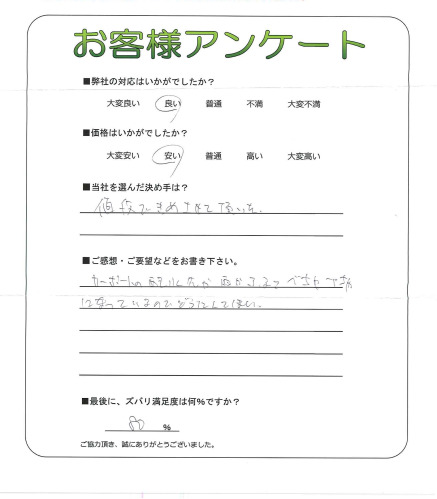 お客様アンケート
■弊社の対応はいかがでしたか？
大変良い 良い 普通 不満 大変不満
■価格はいかがでしたか？
大変安い 安い 普通 高い 大変高い
■当社を選んだ決め手は？
値段できめさせて頂いた.
■ご感想・ご要望などをお書き下さい。
カーポートの
になっているのでどうにかしてほしい.
■最後に、ズバリ満足度は何%ですか？
80 %
ご協力頂き、誠にありがとうございました。